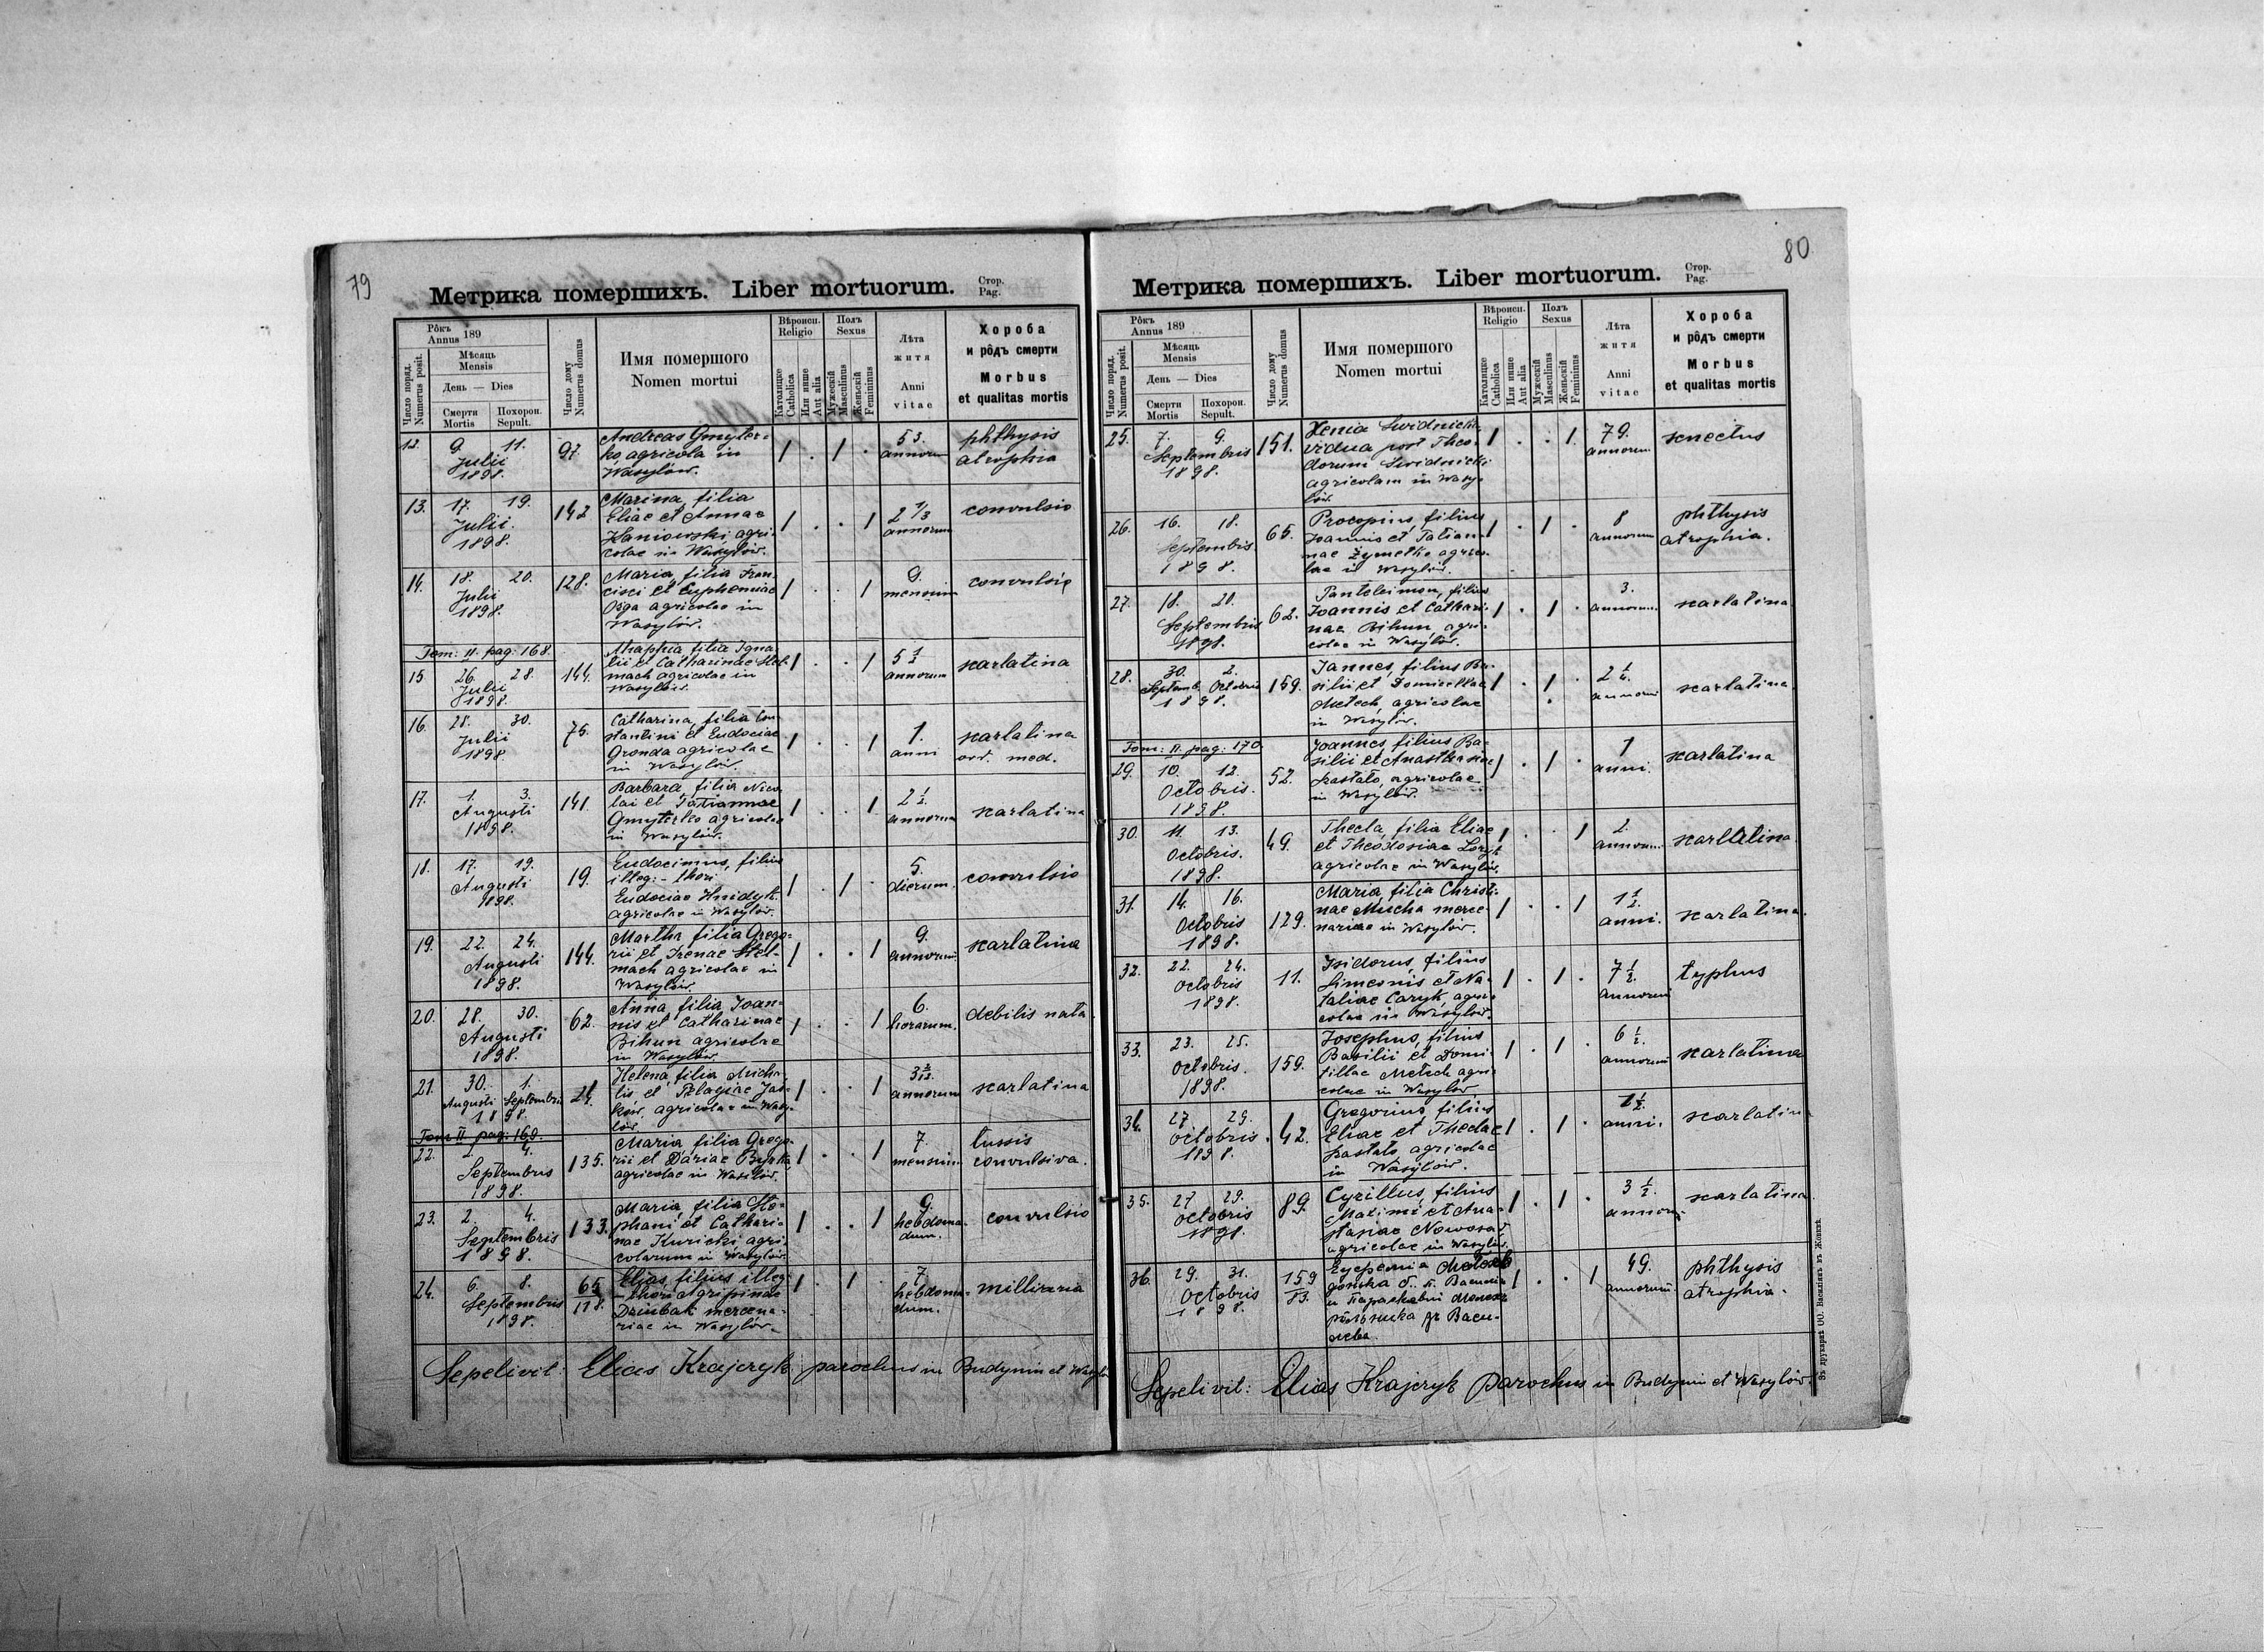 79
Метрика помершихъ. Liber mortuorum. Стор. Pag.
Рôкъ Annus 189
Число поряд. Numerus posit.
Мѣсяць Mensis
День — Dies
Смерти Mortis
Похорон. Sepult.
Число дому Numerus domus
Имя помершого Nomen mortui
Вѣроисп. Religio
Католицке Catholica
Или нише Aut alia
Полъ Sexus
Мужескій Masculinus
Женьскій Femininus
Лѣта житя Anni vitae
Хороба и рôдъ смерти Morbus et qualitas mortis
12. 9. 11. Julii 1898. 97. Andreas Gmyter-
ko agricola in
Wasylów. 1 . 1 . 53. annorum phthysis atrophia
13. 17. 19. Julii. 1898. 142 Marina, filia
Eliae et Annae
Kaniowski, agri-
colae in Wasylów. 1 . . 1 2 1/3 annorum convulsio
14. 18. 20. Julii 1898. 128. Maria, filia Fran-
cisci et Euphemiae
Osga agricolae in
Wasylów. 1 . . 1 9. mensium convulsio
Tom: II. pag: 168.
15 26. 28. Julii 1898. 144. Ahaphia filia Igna-
tii et Catharinae Stel-
mach agricolae in
Wasylów. 1 . . 1 5 1/2 annorum scarlatina
16. 28. 30. Julii 1898. 75. Catharina, filia Con-
stantini et Eudociae
Gronda agricolae
in Wasylów. 1 . . 1 1. anni scarlatina ord. med.
17. 1. 3. Augusti 1898. 141. Barbara, filia Nico-
lai et Tatiannae
Gmyterko agricolae
in Wasylów. 1 . . 1 2 1/2. annorum scarlatina
18. 17. 19. Augusti 1898. 19. Eudocimus, filius
illeg:- thori
Eudociae Hnidyk
agricolae in Wasylów. 1 . 1 . 5. dierum. convulsio
19. 22. 24. Augusti 1898. 144. Martha filia Grego-
rii et Irenae Stel-
mach agricolae in
Wasylów. 1 . . 1 9. annorum scarlatina
20. 28. 30. Augusti 1898. 62. Anna, filia Joan-
nis et Catharinae
Bihun agricolae
in Wasylów 1 . . 1 6. horarum. debilis nata
21. 30. 1. Augusti Septembris 1898. 24. Helena, filia Micha-
lis et Pelagiae Jas-
ków, agricolae in Wasy-
lów 1 . . 1 annorum scarlatina
Tom II. pag: 169.
22. 2. 4. Septembris 1898. 135. Maria, filia Grego-
rii et Dariae Byrka,
agricolae in Wasilów. 1 . . 1 7. mensium tussis convulsiva.
23. 2. 4. Septembris 1898. 133. Maria, filia Ste-
phani et Cathari-
nae Kuricki, agri-
colarum in Wasylów. 1 . . 1 9. hebdoma-
dum. convulsio
24. 6. 8. Septembris 1898. 65/118. Elias, filius illeg:
- thori Agripinae
Dziubak mercena-
riae in Wasylów. 1 . 1 . 7. hebdoma-
dum. milliaria
Sepelivit: Elias Krajczyk parochus in Budynin et Wasylów
80
Метрика помершихъ. Liber mortuorum. Стор. Pag.
Рôкъ Annus 189
Число поряд. Numerus posit.
Мѣсяць Mensis
День — Dies
Смерти Mortis
Похорон. Sepult.
Число дому Numerus domus
Имя помершого Nomen mortui
Вѣроисп. Religio
Католицке Catholica
Или нише Aut alia
Полъ Sexus
Мужескій Masculinus
Женьскій Femininus
Лѣта житя Anni vitae
Хороба и рôдъ смерти Morbus et qualitas mortis
25. 7. 9. Septembris 1898. 151. Xenia Swidnicki
vidua post Theo-
dorum Swidnicki
agricolam in Wasy-
lów. 1 . . 1 79. annorum senectus
26. 16. 18. Septembris 1898. 65. Procopius, filius
Joannis et Tatian-
nae Żymełko agrico-
lae in Wasylów. 1 . 1 . 8 annorum phthysis atrophia.
27. 18. 20. Septembris 1898. 62. Panteleimon, filius
Joannis et Cathari-
nae Bihun agri-
colae in Wasylów. 1 . 1 . 3. annorum. scarlatina
28. 30. 2. Septemb. Octobris 1898. 159. Jannes, filius Ba-
silii et Domicellae
Metech, agricolae
in Wasylów. 1 . 1 . annorum scarlatina.
Tom: II. pag: 170
29. 10. 12. Octobris. 1898. 52. Joannes, filius Ba-
silii et Anasthasiae
agricolae
in Wasylów. 1 . 1 . 1 anni. scarlatina
30. 11. 13. Octobris. 1898. 49. Thecla, filia Eliae
et Theodosiae
agricolae in Wasylów. 1 . . 1 2. annorum. scarlatina.
31. 14. 16. Octobris 1898. 129. Maria, filia Christi-
nae Mucha merce-
nariae in Wasylów. 1 . . 1 1 1/2. anni. scarlatina.
32. 22. 24. Octobris 1898. 11. Isidorus, filius
Simeonis et Na-
taliae Caryk, agri-
colae in Wasylów. 1 . 1 . 7 1/2. annorum typhus
33. 23. 25. Octobris. 1898. 159. Josephus, filius
Basilii et Domi-
tillae Metech agri-
colae in Wasylów 1 . 1 . 6 1/2. annorum scarlatina
34. 27 29. Octobris 1898. 42. Gregorius, filius
Eliae et Theclae
agricolae
in Wasylów. 1 . 1 . 1 1/2. anni. scarlatina
35. 27 29. Octobris 1898. 89. Cyrillus, filius
Maximi et Ana-
stasiae Nowosad,
agricolae in Wasylów. 1 . 1 . 3 1/2. annorum. scarlatina
36. 29. 31. Octobris 1898. 159/83. 1 . . 1 49. annorum phthysis atrophia.
Sepelivit: Elias Krajczyk parochus in Budynin et Wasylów.
Зъ друкарнѣ ОО. Василіянъ въ Жовквѣ.